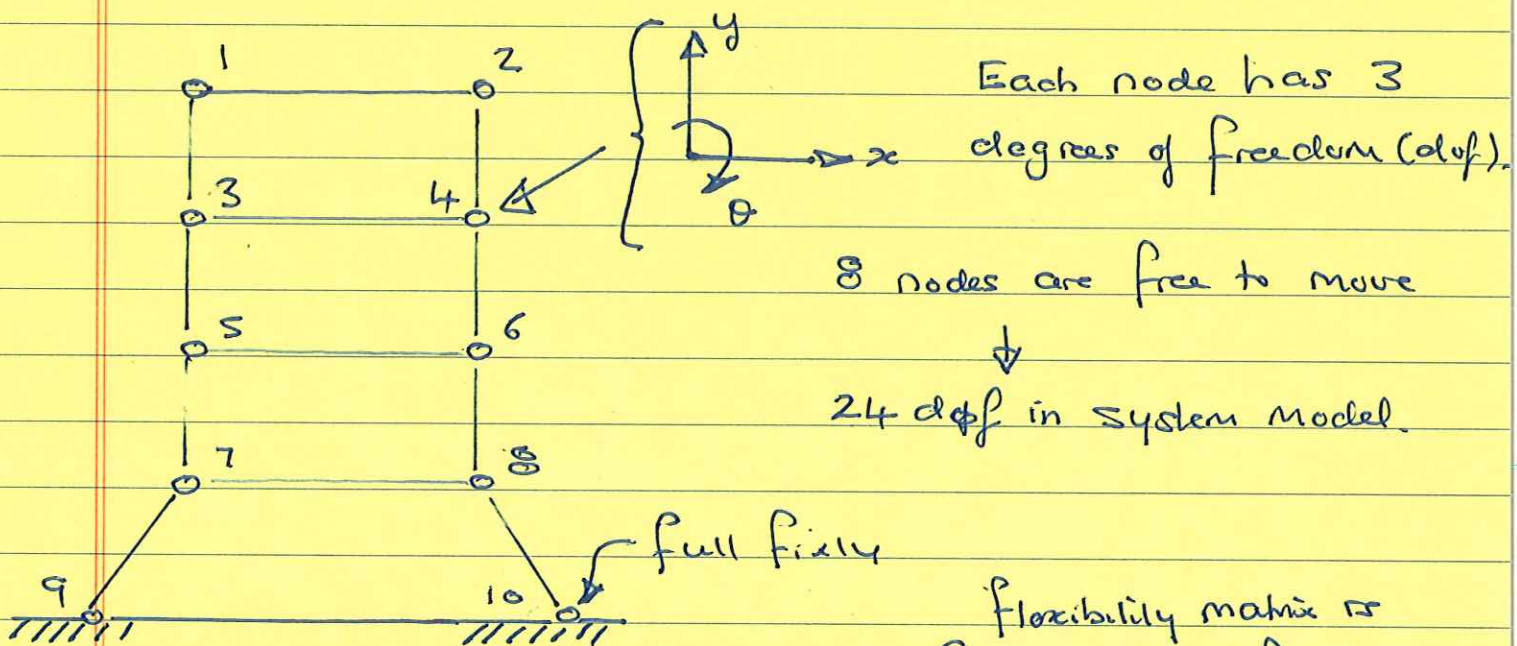 1 2 y
Each node has 3
3 4 x degrees of freedom (dof).
θ
8 nodes are free to move
5 6
24 dof in system model.
7 8
full fixity
9 10
flexibility matrix is